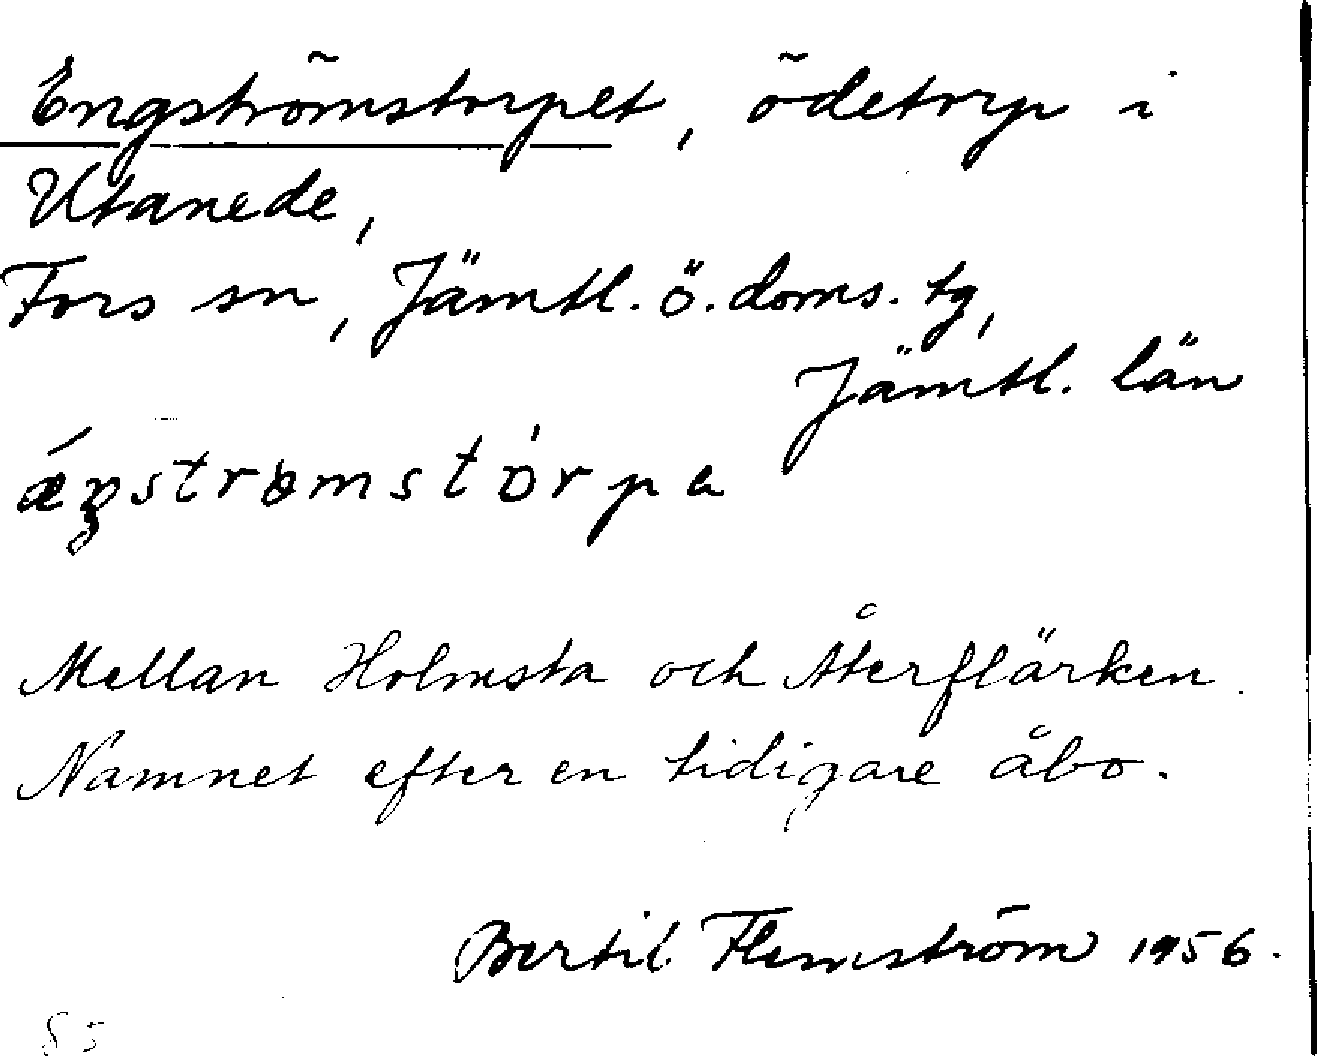 Engströmstorpet, ödetorp i
Utanede,
Fors sn, Jämtl. ö. doms. tg,
Jämtl. län
ǽŋstrɵmstòrpa
Mellan Holmsta och Återflärken.
Namnet efter en tidigare åbo.
Bertil Flemström 1956.